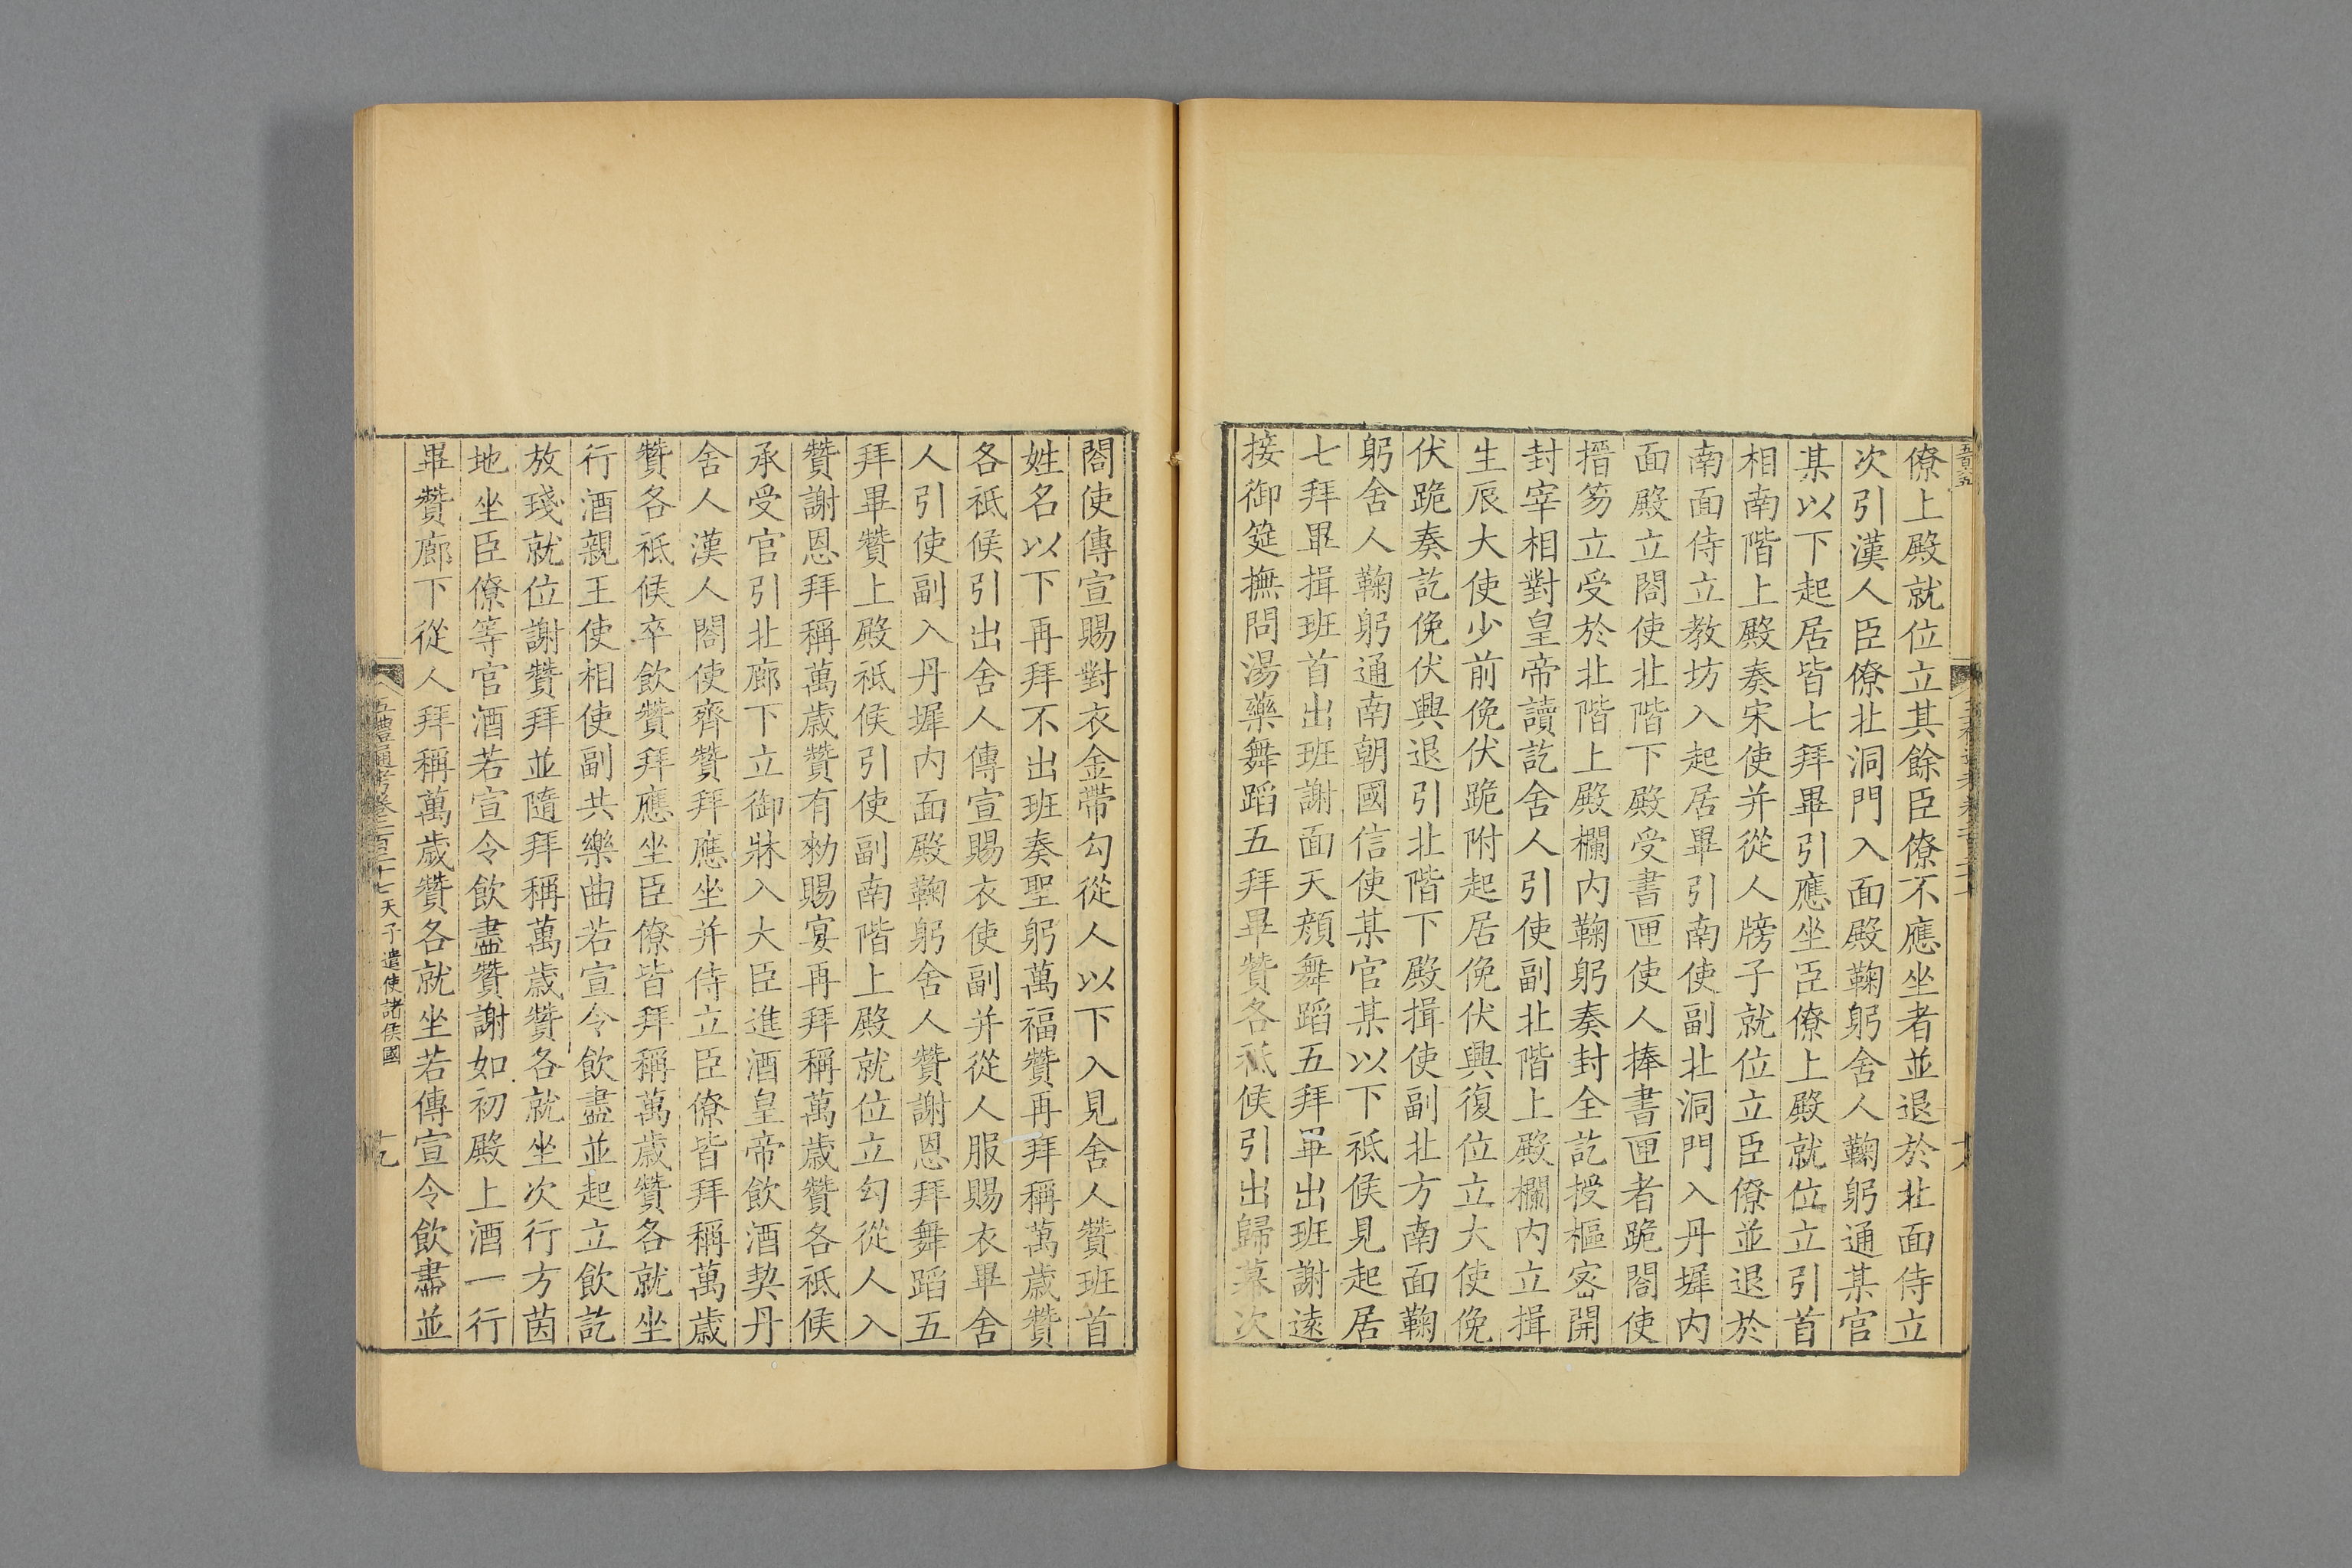 僚上殿就位立其餘臣僚不應坐者並退於北面侍立
次引漢人臣僚北洞門入面殿鞠躬舍人鞠躬通某官
某以下起居皆七拜畢引應坐臣僚上殿就位立引首
相南階上殿奏宋使并從人牓子就位立臣僚並退於
南面侍立教坊入起居畢引南使副北洞門入丹墀内
面殿立閤使北階下殿受書匣使人捧書匣者跪閤使
搢笏立受於北階上殿欄内鞠躬奏封全訖授樞宻開
封宰相對皇帝讀訖舍人引使副北階上殿欄内立揖
生辰大使少前俛伏跪附起居俛伏興復位立大使俛
伏跪奏訖俛伏興退引北階下殿揖使副北方南面鞠
躬舍人鞠躬通南朝國信使某官某以下祗候見起居
七拜畢揖班首出班謝面天顔舞蹈五拜畢出班謝逺
接御筵撫問湯藥舞蹈五拜畢贊各祗候引出歸幕次
閤使傳宣賜對衣金帶勾從人以下入見舍人贊班首
姓名以下再拜不出班奏聖躬萬福贊再拜稱萬歲贊
各祗候引出舍人傳宣賜衣使副并從人服賜衣畢舍
人引使副入丹墀内面殿鞠躬舍人贊謝恩拜舞蹈五
拜畢贊上殿祗候引使副南階上殿就位立勾從人入
贊謝恩拜稱萬歲贊有勑賜宴再拜稱萬歲贊各祗候
承受官引北廊下立御牀入大臣進酒皇帝飲酒契丹
舍人漢人閤使齊贊拜應坐并侍立臣僚皆拜稱萬歲
贊各祗候卒飲贊拜應坐臣僚皆拜稱萬歲贊各就坐
行酒親王使相使副共樂曲若宣令飲盡並起立飲訖
放琖就位謝贊拜並隨拜稱萬歲贊各就坐次行方茵
地坐臣僚等官酒若宣令飲盡贊謝如初殿上酒一行
畢贊廊下從人拜稱萬歲贊各就坐若傳宣令飲盡並
五禮通考卷二百二十七天子遣使諸侯國
十九